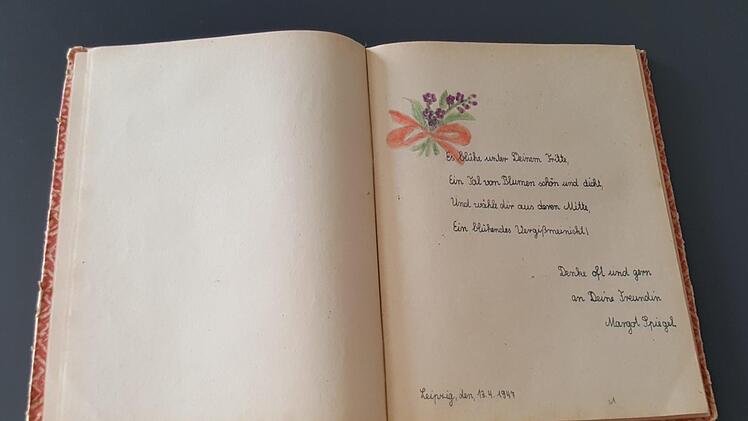 Es blühe unter Deinem Tritte,
Ein Tal von Blumen schön und dicht,
Und wähle dir aus deren Mitte,
Ein blühendes Vergißmeinicht!
Denke oft und gern
an Deine Freundin
Margot Spiegel
Leipzig, den, 13.4.1947